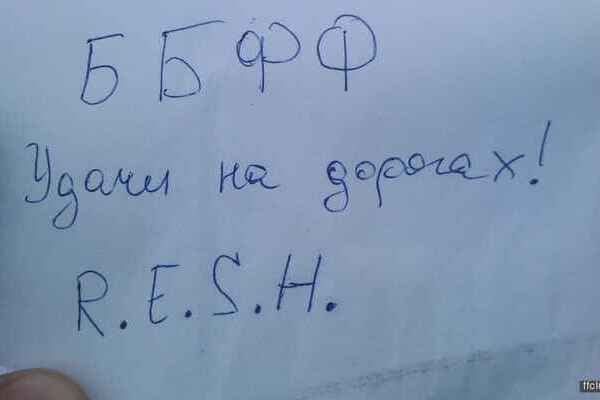 Б Б Ф Ф
Удачи на дорогах!
R.E.S.H.